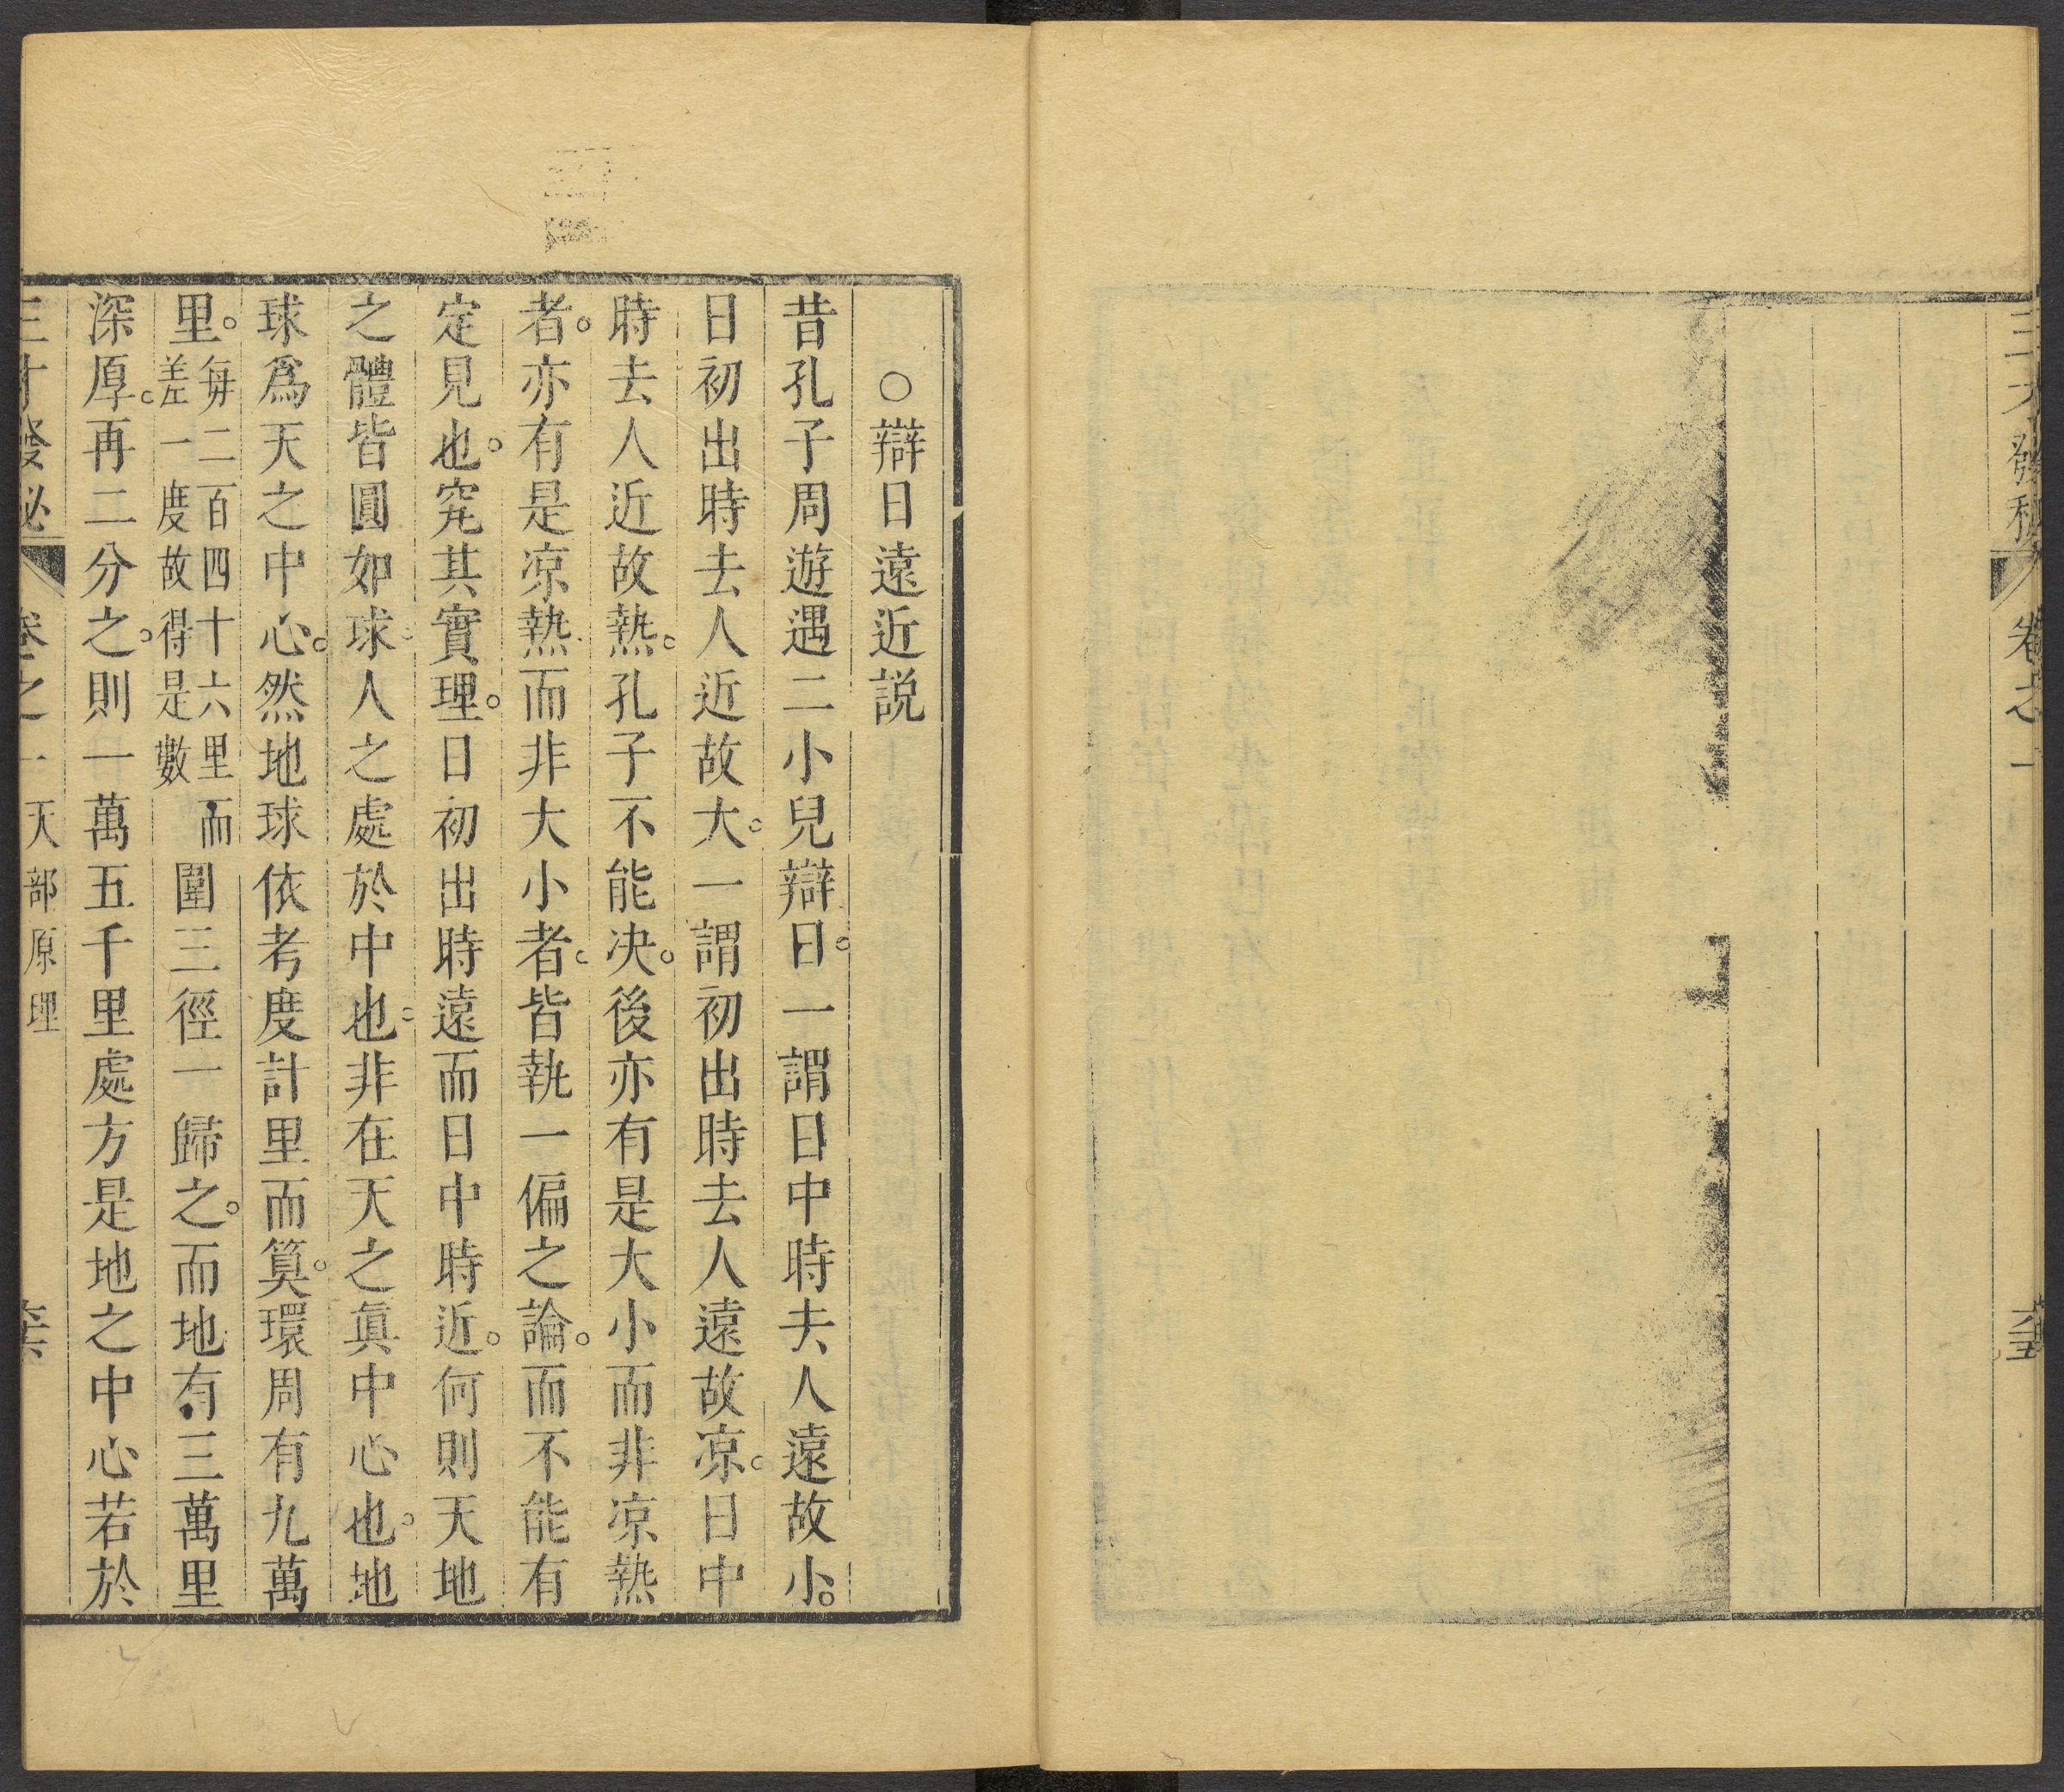 三才發秘 卷之一
○辯日遠近説
昔孔子周遊遇二小兒辯日。一謂日中時去人遠故小。
日初出時去人近故大。一謂初出時去人遠故凉。日中
時去人近故熱。孔子不能决。後亦有是大小而非凉熱
者。亦有是凉熱而非大小者。皆執一偏之論。而不能有
定見也。究其實理。日初出時遠而日中時近。何則天地
之體皆圓如球。人之處於中也。非在天之眞中心也。地
球爲天之中心。然地球依考度計里而筭。環周有九萬
里。每二百四十六里而差一度故得是數圍三徑一歸之。而地有三萬里
深厚。再二分之。則一萬五千里處方是地之中心若於
三才發秘 卷之一 天部原理